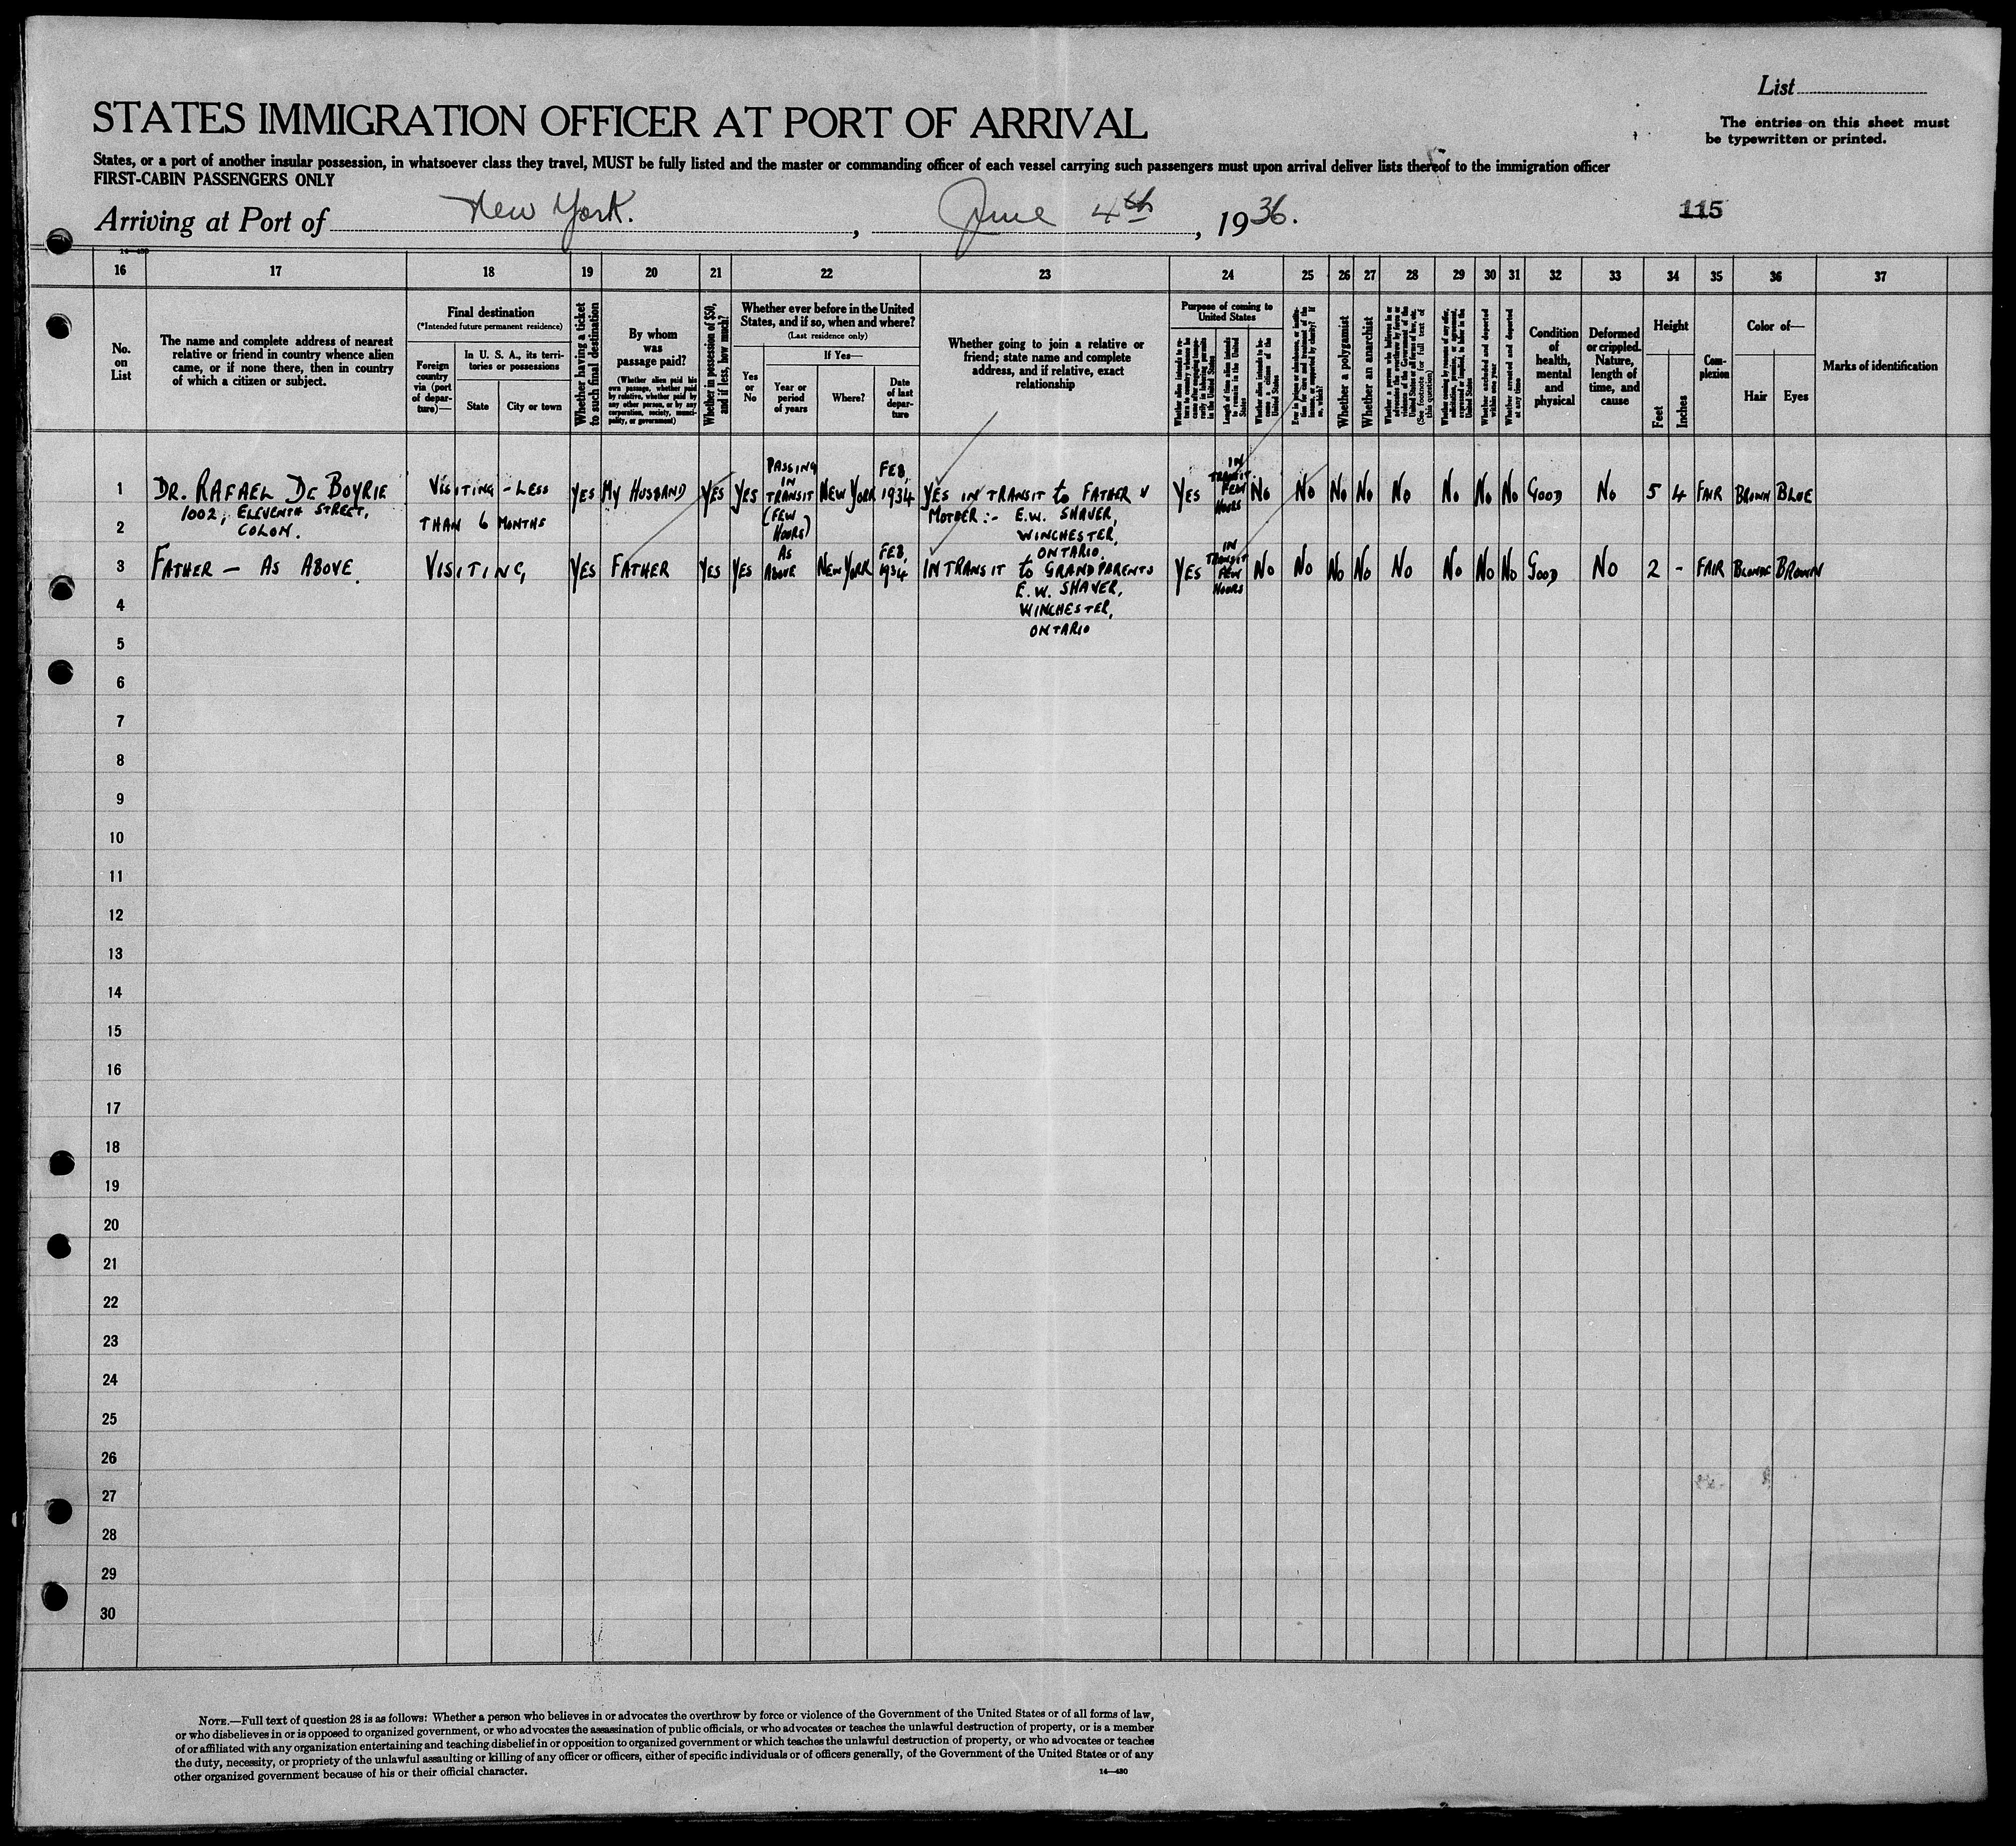 List
The entries on this sheet must
be typewritten or printed.
STATES IMMIGRATION OFFICER AT PORT OF ARRIVAL
States, or a port of another insular possession, in whatsoever class they travel, MUST be fully listed and the master or commanding officer of each vessel carrying such passengers must upon arrival deliver lists thereof to the immigration officer
FIRST-CABIN PASSENGERS ONLY
Arriving at Port of New York. , June 4th , 1936.
115
16 17 18 19 20 21 22 23 24 25 26 27 28 29 30 31 32 33 34 35 36 37
No.
on
List
The name and complete address of nearest
relative or friend in country whence alien
came, or if none there, then in country
of which a citizen or subject.
Final destination
(*Intended future permanent residence)
Foreign
country
via (port
of depar-
ture)—
In U. S. A., its terri-
tories or possessions
State
City or town
Whether having a ticket
to such final destination
By whom
was
passage paid?
(Whether alien paid his
own passage, whether paid
by relative, whether paid by
any other person, or by any
corporation, society, munici-
pality, or government)
Whether in possession of $50,
and if less, how much?
Whether ever before in the United
States, and if so, when and where?
(Last residence only)
Yes
or
No
If Yes—
Year or
period
of years
Where?
Date
of last
depar-
ture
Whether going to join a relative or
friend; state name and complete
address, and if relative, exact
relationship
Purpose of coming to
United States
Length of time alien intends
to remain in the United
States
Whether alien intends to be-
come a citizen of the
United States
Whether a polygamist
Whether an anarchist
Whether arrested and deported
within one year
Whether arrested and deported
at any time
Condition
of
health,
mental
and
physical
Deformed
or crippled.
Nature,
length of
time, and
cause
Height
Feet
Inches
Com-
plexion
Color of—
Hair
Eyes
Marks of identification
1 DR. RAFAEL DE BOYRIE
1002, ELEVENTH STREET,
COLON.
VISITING - LESS
THAN 6 MONTHS
YES
MY HUSBAND
YES
YES
PASSING
IN
TRANSIT
(FEW
HOURS)
NEW YORK
FEB,
1934
YES IN TRANSIT to FATHER &
MOTHER:- E.W. SHAVER,
WINCHESTER,
ONTARIO.
YES
IN
TRANSIT
FEW
HOURS
NO NO NO NO NO NO NO NO GOOD NO 5 4 FAIR BROWN BLUE
2
3 FATHER — AS ABOVE.
VISITING
YES
FATHER
YES
YES
AS
ABOVE
NEW YORK
FEB,
1934
IN TRANSIT to GRANDPARENTS
E.W. SHAVER,
WINCHESTER,
ONTARIO
YES
IN
TRANSIT
FEW
HOURS
NO NO NO NO NO NO NO NO GOOD NO 2 - FAIR BLONDE BROWN
4
5
6
7
8
9
10
11
12
13
14
15
16
17
18
19
20
21
22
23
24
25
26
27
28
29
30
NOTE.—Full text of question 28 is as follows: Whether a person who believes in or advocates the overthrow by force or violence of the Government of the United States or of all forms of law,
or who disbelieves in or is opposed to organized government, or who advocates the assassination of public officials, or who advocates or teaches the unlawful destruction of property, or is a member
of or affiliated with any organization entertaining and teaching disbelief in or opposition to organized government or which teaches the unlawful destruction of property, or who advocates or teaches
the duty, necessity, or propriety of the unlawful assaulting or killing of any officer or officers, either of specific individuals or of officers generally, of the Government of the United States or of any
other organized government because of his or their official character.
14—430